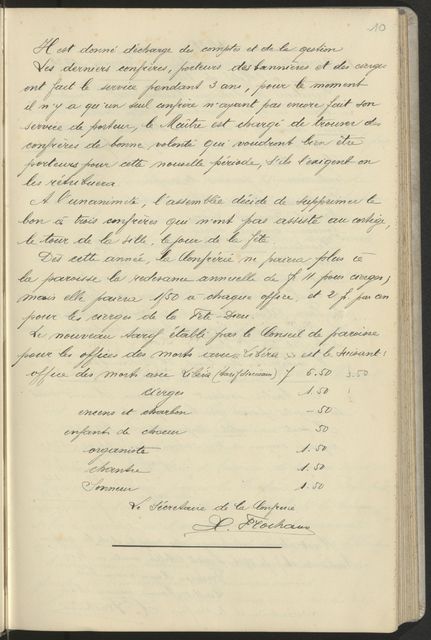 10
Il est donné décharge des comptes et de la gestion
Les derniers confrères, porteurs des bannières et des cierges
ont fait le service pendant 3 ans, pour le moment
il n'y a qu'un seul confrère n'ayant pas encore fait son
service de porteur, le Maître est chargé de trouver des
confrères de bonne volonté qui voudront bien être
porteurs pour cette nouvelle période, s'ils l'exigent on
les rétribuera
A l'unanimité, l'assemblée décide de supprimer le
bon à trois confrères qui n'ont pas assisté au cortège,
le tour de la ville, le jour de la fête.
Dès cette année, la Confrérie ne paiera plus à
la paroisse la redevance annuelle de f 11 pour cierges;
mais elle paiera 1f50 à chaque office et 2 f. par an
pour les cierges de la Fête-Dieu.
Le nouveau tarif établi par le Conseil de paroisse
pour les offices des morts avec "Libéra" est le suivant:
office des morts avec Libéra (tarif diocésain) f 6.50 3.50
cierges 1.50
encens et charbon -50
enfants de choeur -50
organiste 1.50
chantre 1.50
Sonneur 1.50
Le Secrétaire de la Confrérie